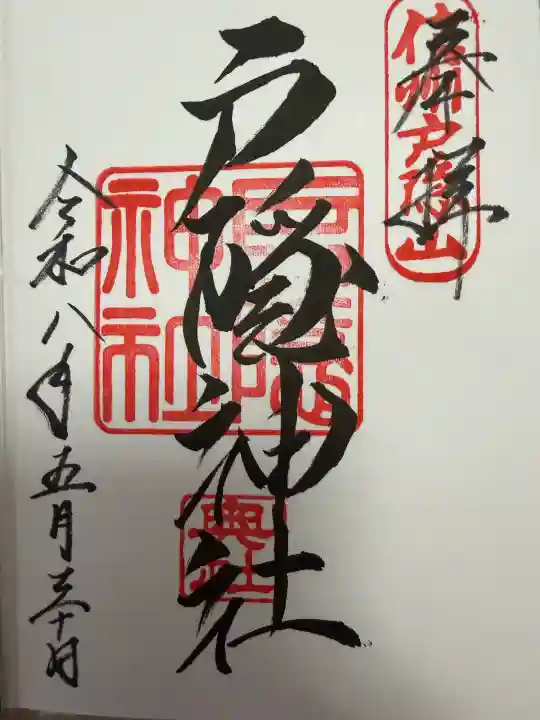 奉拝
信州戸隠山
戸隠神社
戸隠神社
奥社
令和八年五月三十日